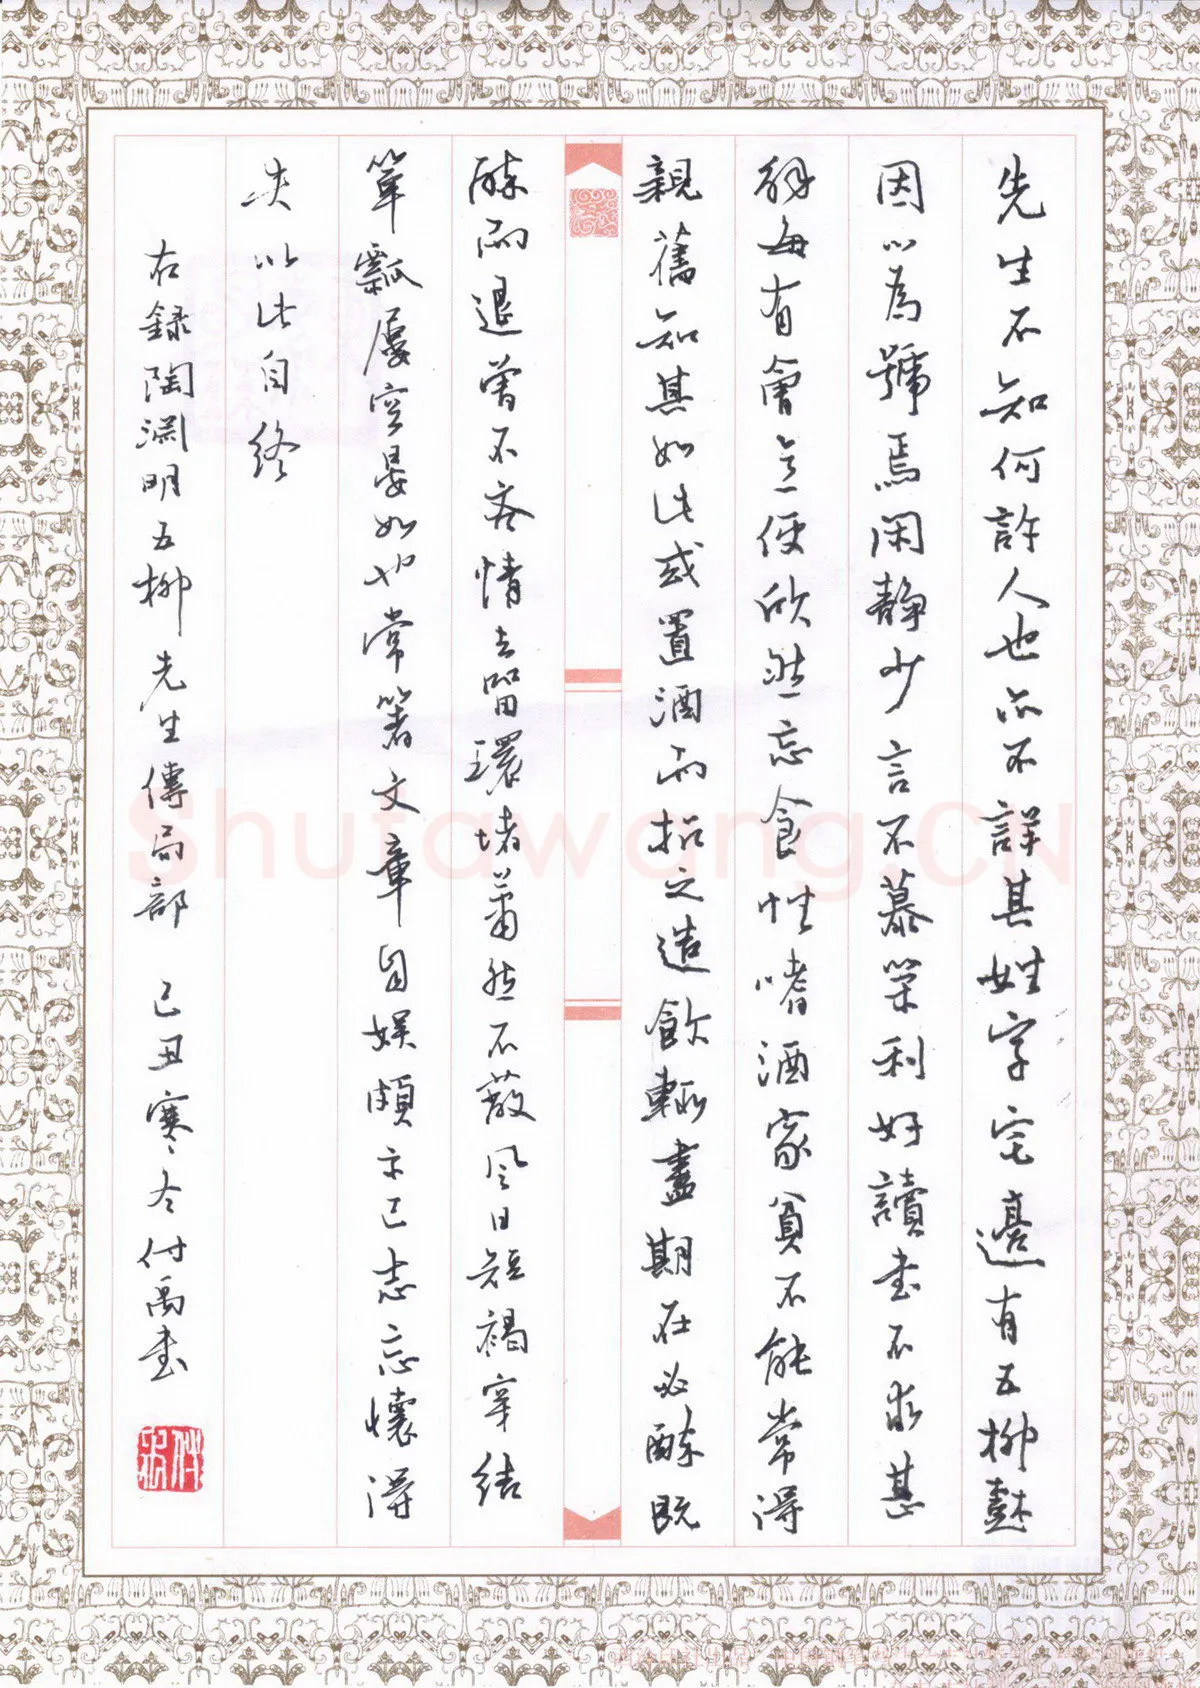 先生不知何許人也亦不詳其姓字宅邊有五柳樹
因以為號焉閑静少言不慕榮利好讀書不求甚
解每有會意便欣然忘食性嗜酒家貧不能常得
親舊知其如此或置酒而招之造飲輒盡期在必醉既
醉而退曾不吝情去留環堵蕭然不蔽风日短褐穿結
簞瓢屢空晏如也常箸文章自娛頗示己志忘懷得
失以此自終
右録陶淵明五柳先生傳局部 己丑寒冬付禹書
Shufawang.CN